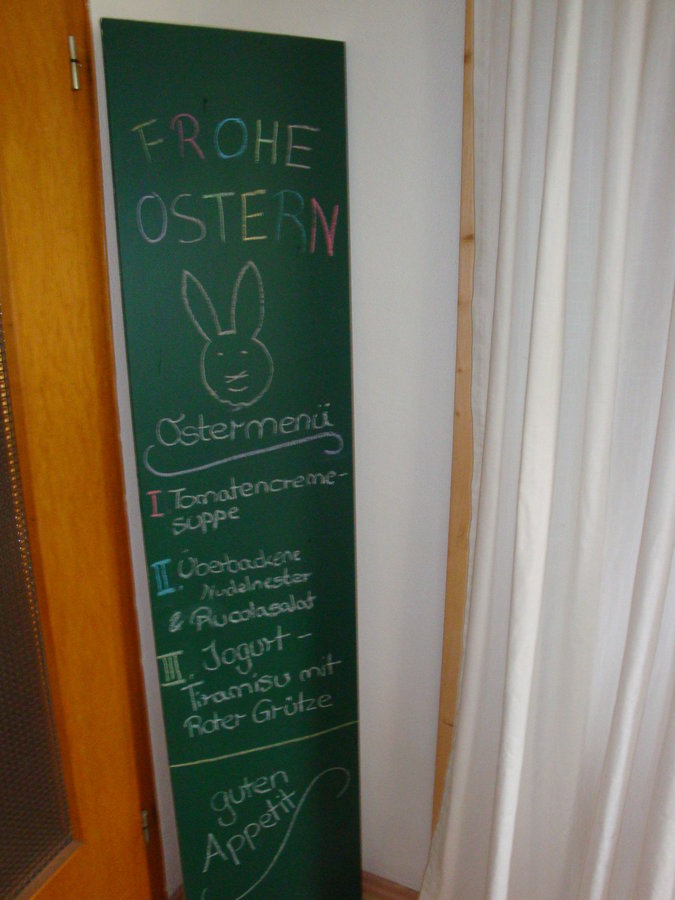 FROHE
OSTERN
Ostermenü
I. Tomatencreme-
suppe
II. Überbackene
Nudelnester
& Rucolasalat
III. Jogurt-
Tiramisu mit
Roter Grütze
guten
Appetit